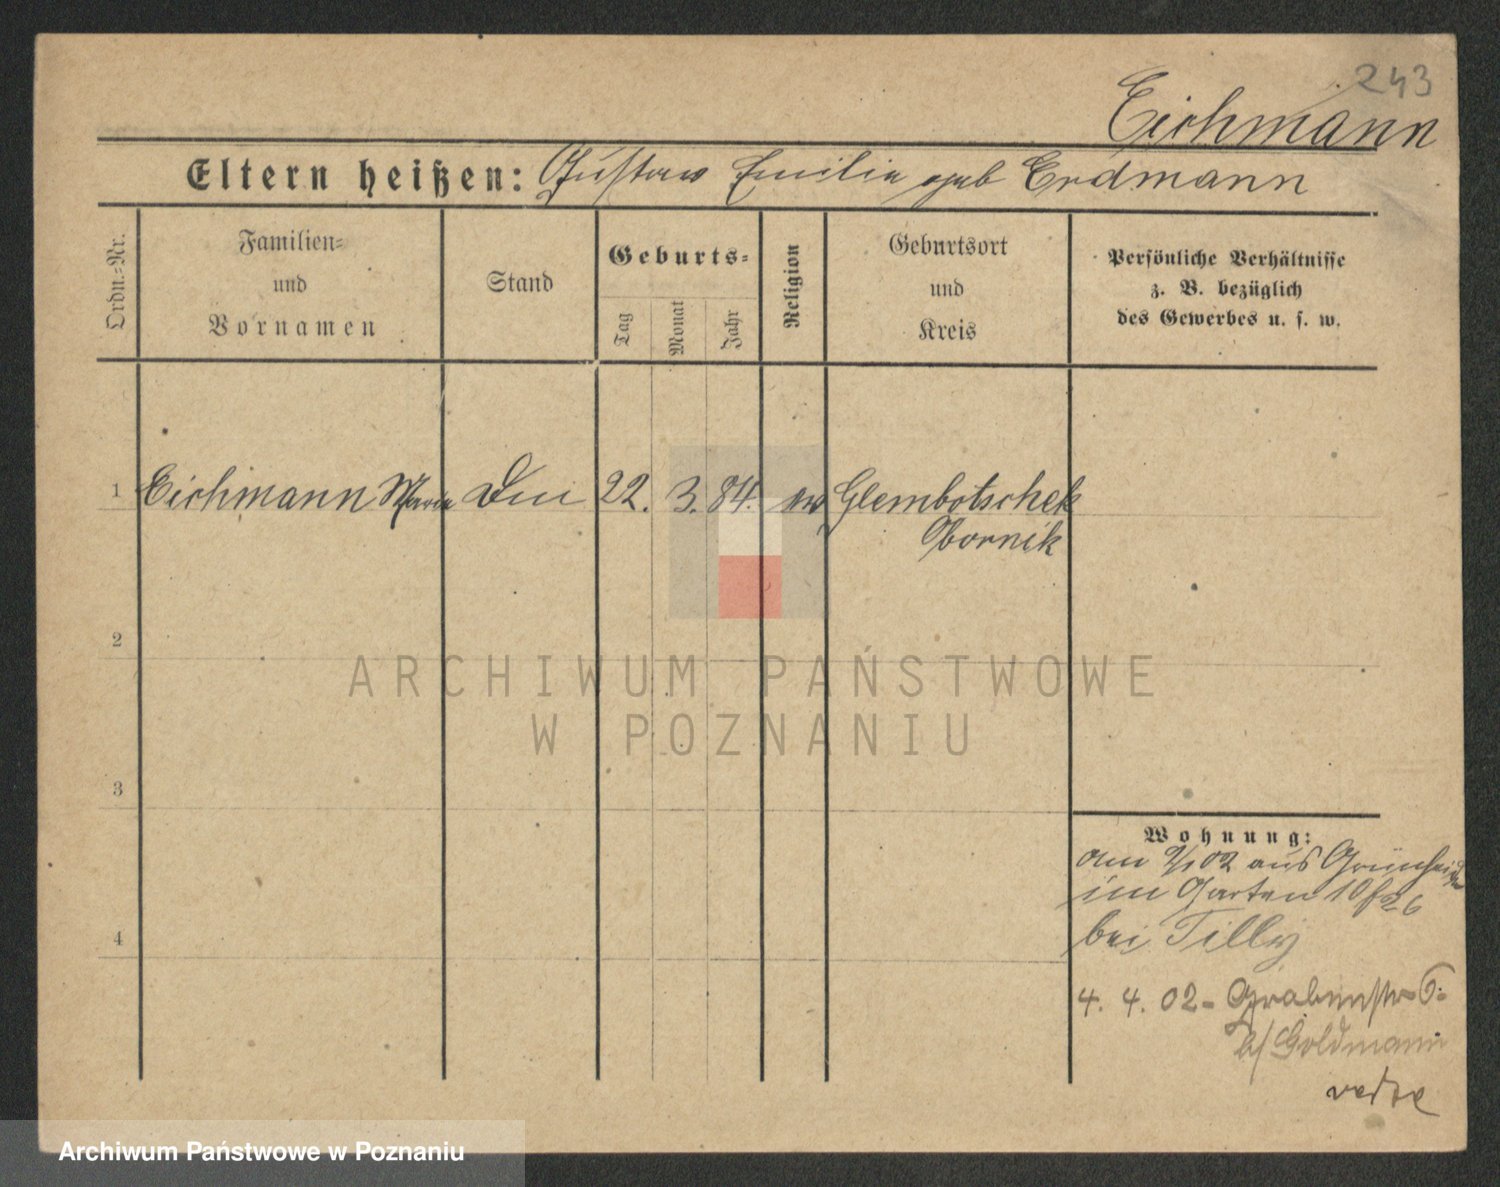 243
Eichmann
Eltern heißen: Gustav Emilie geb Erdmann
Ordn.=Nr.
Familien=
und
Vornamen
Stand
Geburts=
Tag
Monat
Jahr
Religion
Geburtsort
und
Kreis
Persönliche Verhältnisse
z. B. bezüglich
des Gewerbes u. s. w.
1 Eichmann Maria 22. 3. 84. ev Glembotschek
Obornik
2
ARCHIWUM PAŃSTWOWE
W POZNANIU
3
4
Wohnung:
am 2/1 02 aus Grünheide
im Garten 10
bei Tilly
4. 4. 02 - Grabenstr 6.
b/ Goldmann
Archiwum Państwowe w Poznaniu